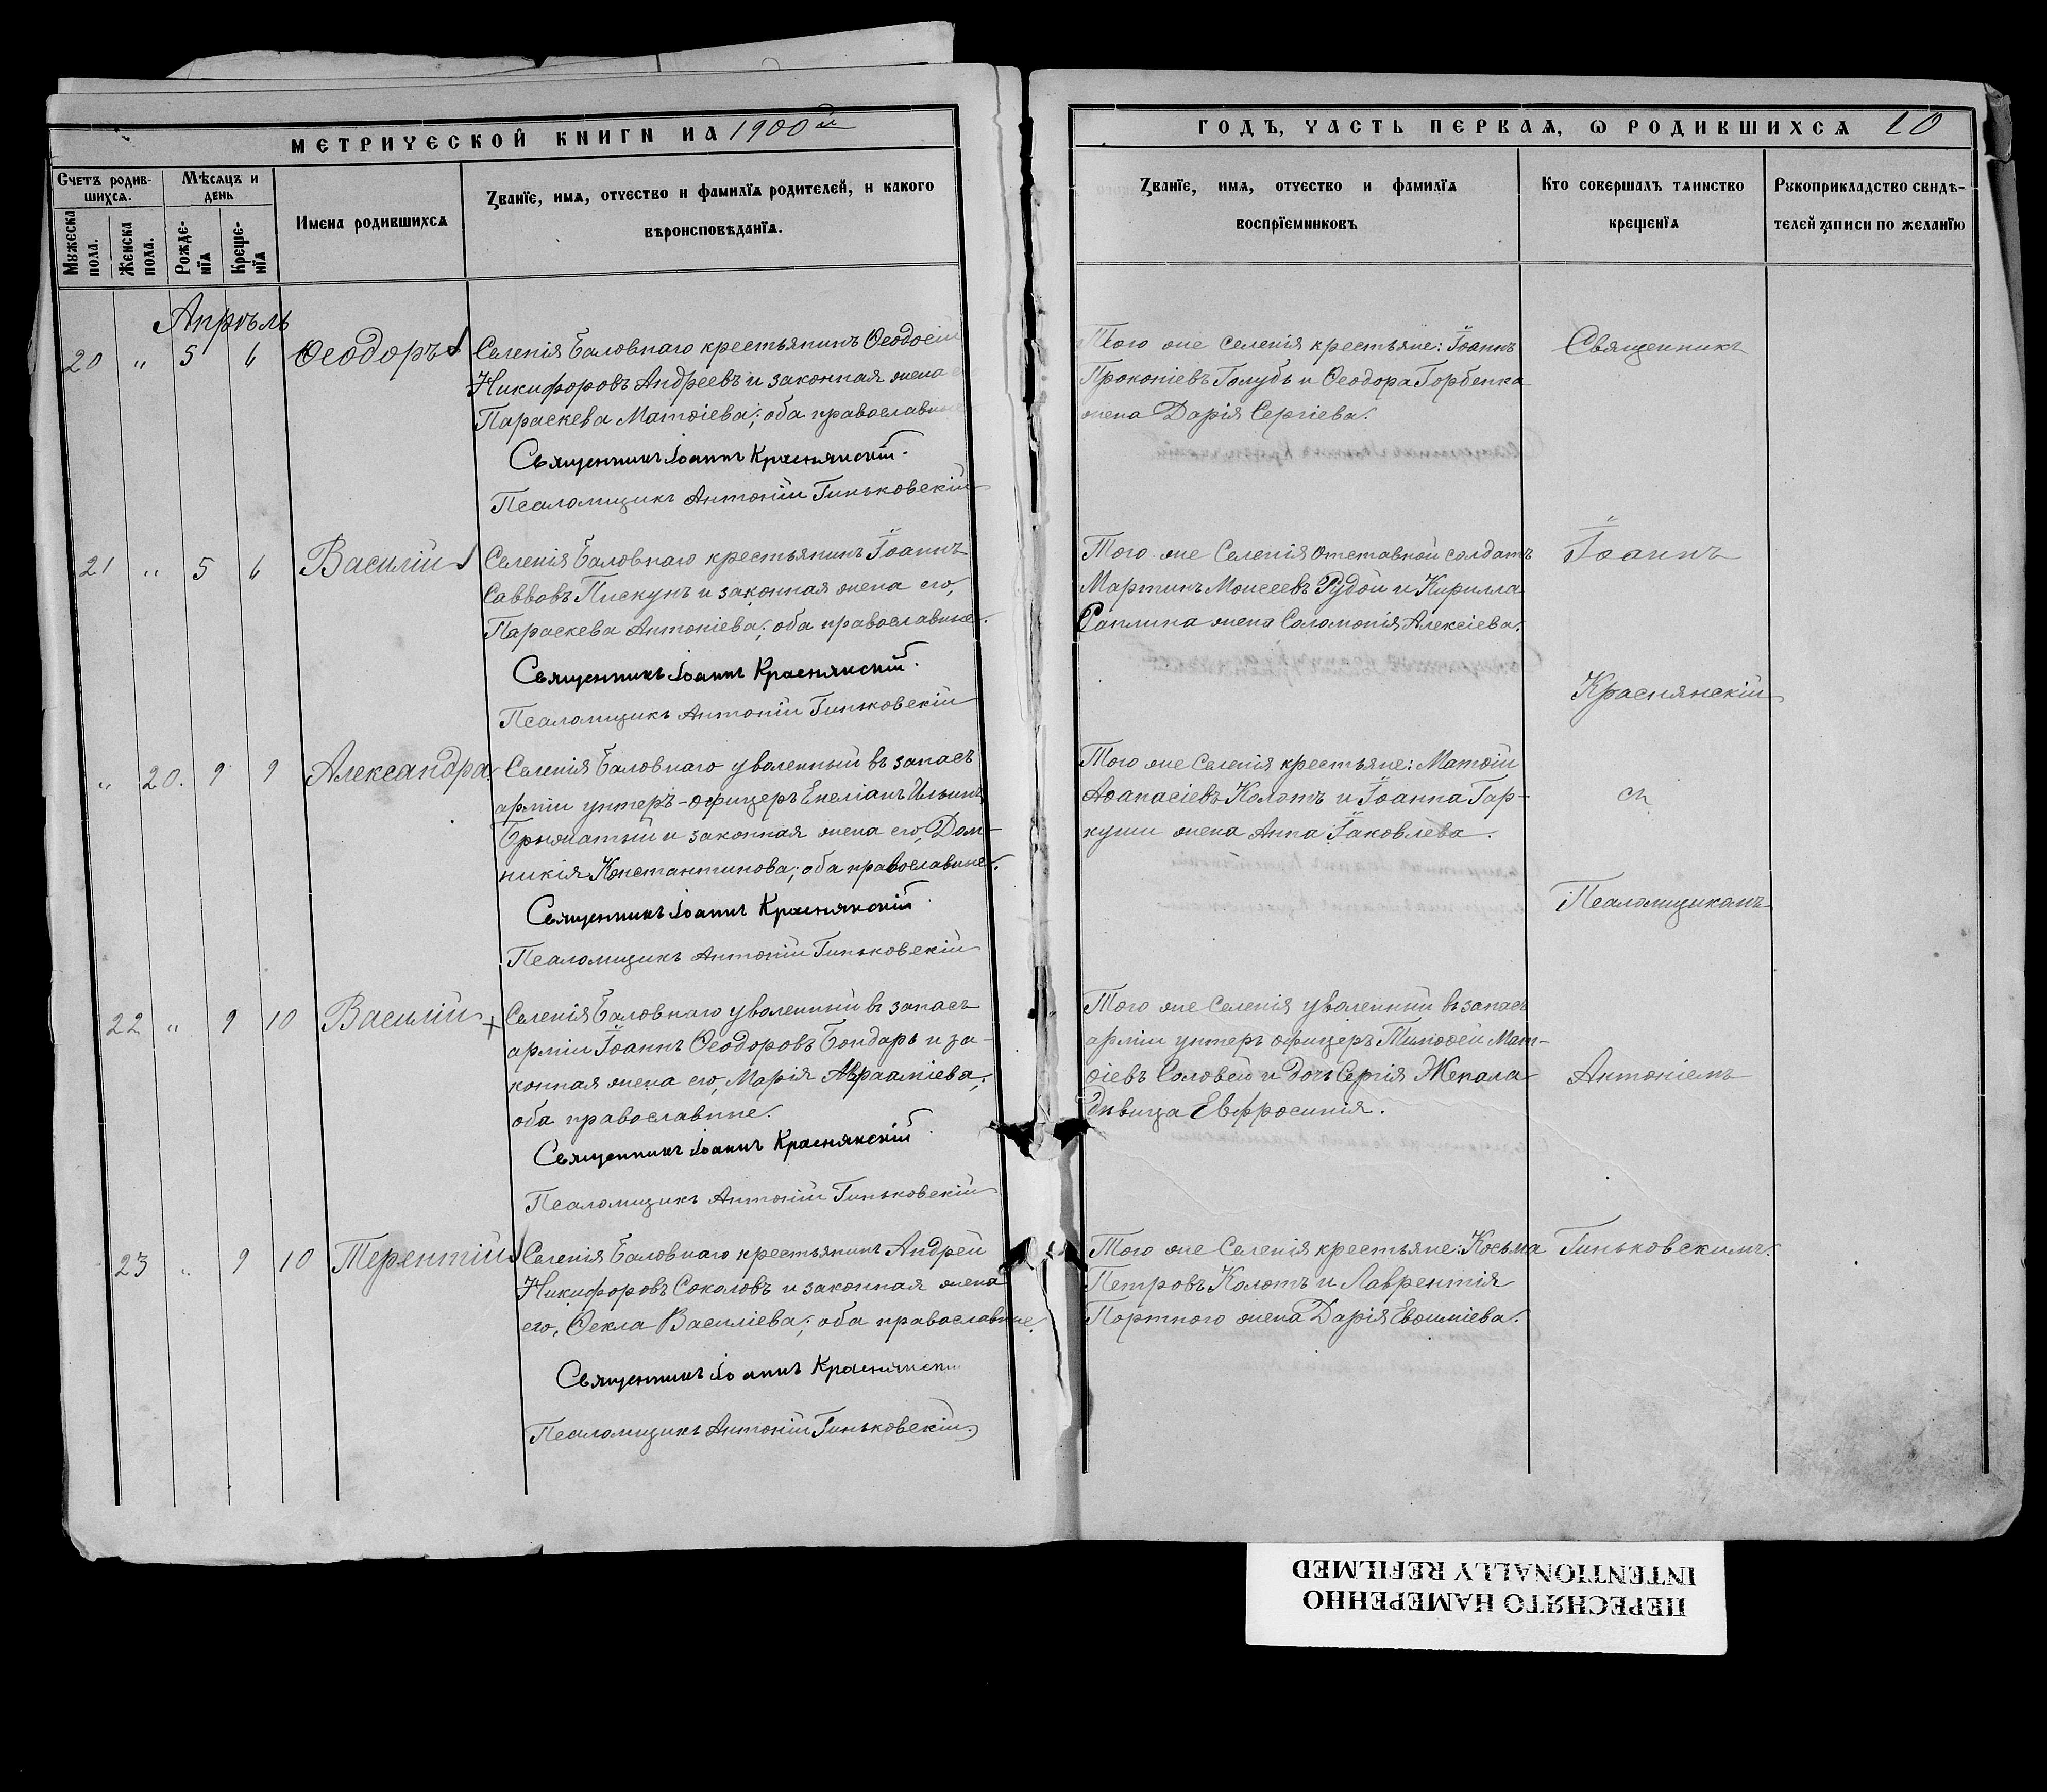 МЕТРИЧЕСКОЙ КНИГИ НА 1900й
Счетъ родив-
шихся.
Мѣсяцъ и
день
Мужеска
пола.
Женска
пола.
Рожде-
нія
Креще-
нія
Имена родившихся
Званіе, имя, отчество и фамилія родителей, и какого
вѣроисповѣданія.
Апрѣль
20 " 5 6 Ѳеодоръ
Селенія Баловнаго крестьянинъ Ѳеодосій
Никифоровъ Андреевъ и законная жена
Параскева Матѳіева; оба православные
Священникъ Іоаннъ Краснянскій.
Псаломщикъ Антоній Гиньковскій
21 " 5 6 Василій
Селенія Баловнаго крестьянинъ Іоаннъ
Саввовъ Пискунъ и законная жена его,
Параскева Антоніева; оба православные.
Священникъ Іоаннъ Краснянскій.
Псаломщикъ Антоній Гиньковскій
" 20. 9 9 Александра
Селенія Баловнаго уволенный въ запасъ
арміи унтеръ-офицеръ Емеліанъ Ильинъ
и законная жена его, Дом-
никія Константинова; оба православные.
Священникъ Іоаннъ Краснянскій.
Псаломщикъ Антоній Гиньковскій
22 " 9 10 Василій +
Селенія Баловнаго уволенный въ запасъ
арміи Іоаннъ Ѳеодоровъ Бондарь и за-
конная жена его, Марія Авраамiева;
оба православные.
Священникъ Іоаннъ Краснянскій.
Псаломщикъ Антоній Гиньковскій
23 " 9 10 Терентій
Селенія Баловнаго крестьянинъ Андрей
Никифоровъ Соколовъ и законная жена
его, Ѳекла Василіева; оба православные.
Священникъ Іоаннъ Краснянскій
Псаломщикъ Антоній Гиньковскій.
ГОДЪ, ЧАСТЬ ПЕРВАЯ, Ѡ РОДИВШИХСЯ 10
Званіе, имя, отчество и фамилія
воспріемниковъ
Кто совершалъ таинство
крещенія
Рукоприкладство свидѣ-
телей записи по желанію
Того же селенія крестьяне: Іоаннъ
Прокопіевъ Голубъ и Ѳеодора Горбенка
жена Дарія Сергіева.
Того же Селенія отставной солдатъ
Мартинъ Моисеевъ Рудой и Кирилла
жена Соломонія Алексіева.
Того же Селенія крестьяне: Матѳій
Аѳанасіевъ Колотъ и Іоанна Гар-
куши жена Анна Іаковлева.
Того же Селенія уволенный въ запасъ
арміи унтеръ офицеръ Тимоѳей Мат-
ѳіевъ Соловей и дочь Сергія Жекала
дѣвица Евфросинія.
Того же Селенія крестьяне: Косьма
Петровъ Колотъ и Лаврентія
Портного жена Дарія Евѳиміева.
Священникъ
Іоаннъ
Краснянскій
съ
Псаломщикомъ
Антоніемъ
Гиньковскимъ.
ПЕРЕСНЯТО НАМЕРЕННО
INTENTIONALLY REFILMED